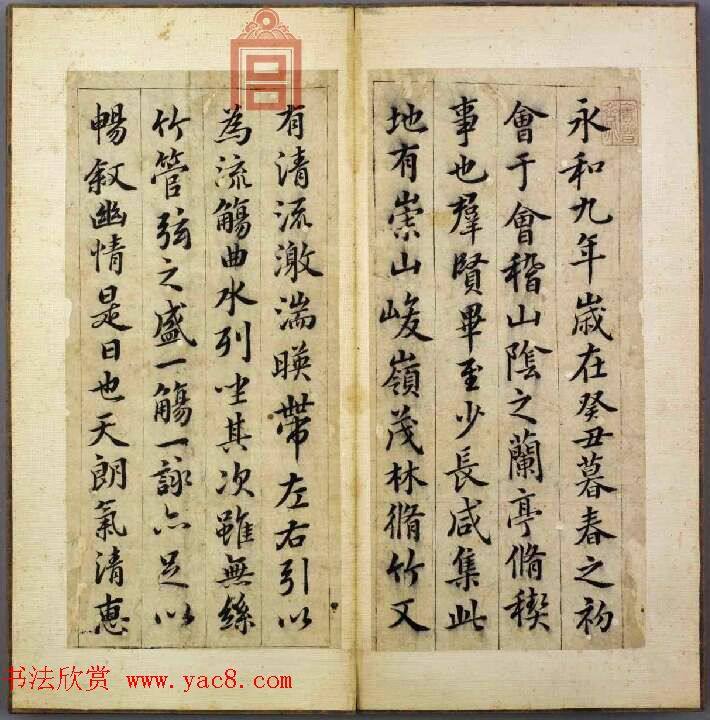 永和九年歲在癸丑暮春之初
會于會稽山陰之蘭亭脩稧
事也羣賢畢至少長咸集此
地有崇山峻嶺茂林脩竹又
有清流激湍暎帶左右引以
為流觴曲水列坐其次雖無絲
竹管弦之盛一觴一詠亦足以
暢叙幽情是日也天朗氣清惠
书法欣赏 www.yac8.com